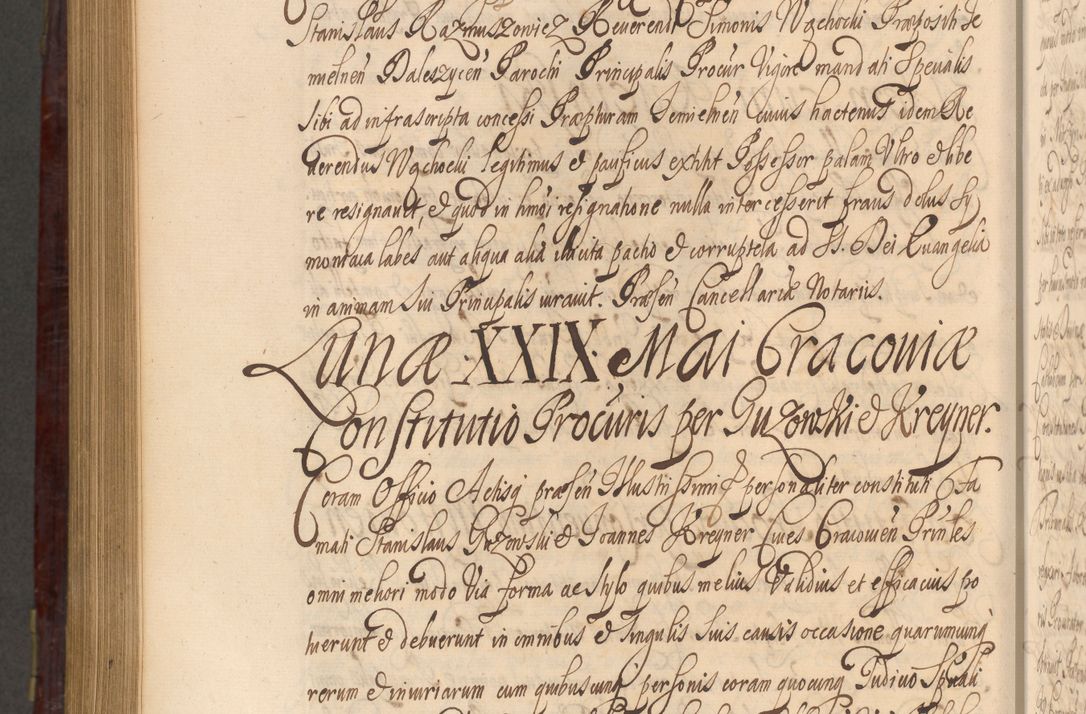 Stanislaus Razmuszowicz Reverendi Simonis Wąchocki Præpositi Je
mielnen Daleszycen Parochi Principalis Procur Vigore mandati Specialis
sibi ad infrascripta concessi Præpturam Jemielnen Cuius hactenus idem Re
verendus Wąchocki legitimus et pacificus extitit Possessor palam Vltro et libe
re resignavit, et quod in hmoi resignatione nulla intercesserit fraus dolus Sy
moniaca labes aut aliqua alia illicita pactio et corruptela ad St. Dei Euangelia
in animam sui Principalis iuravit. Præsen Cancellariæ Notariis.
Lunæ XXIX Mai Cracoviæ
Constitutio Procuris per Guzowski et Kreyner.
Coram Officio Actisq præsen Illustrissimi personaliter constituti Fa
mati Stanislaus Guzowski et Joannes Kreyner Cives Cracovien Prinles
omni meliori modo Via forma ac stylo quibus melius Validius et efficacius po
tuerunt et debuerunt in omnibus et singulis suis causis occasione quarumcunq
rerum et iniuriarum cum quibuscunq personis coram quocunq Judicio Spuali